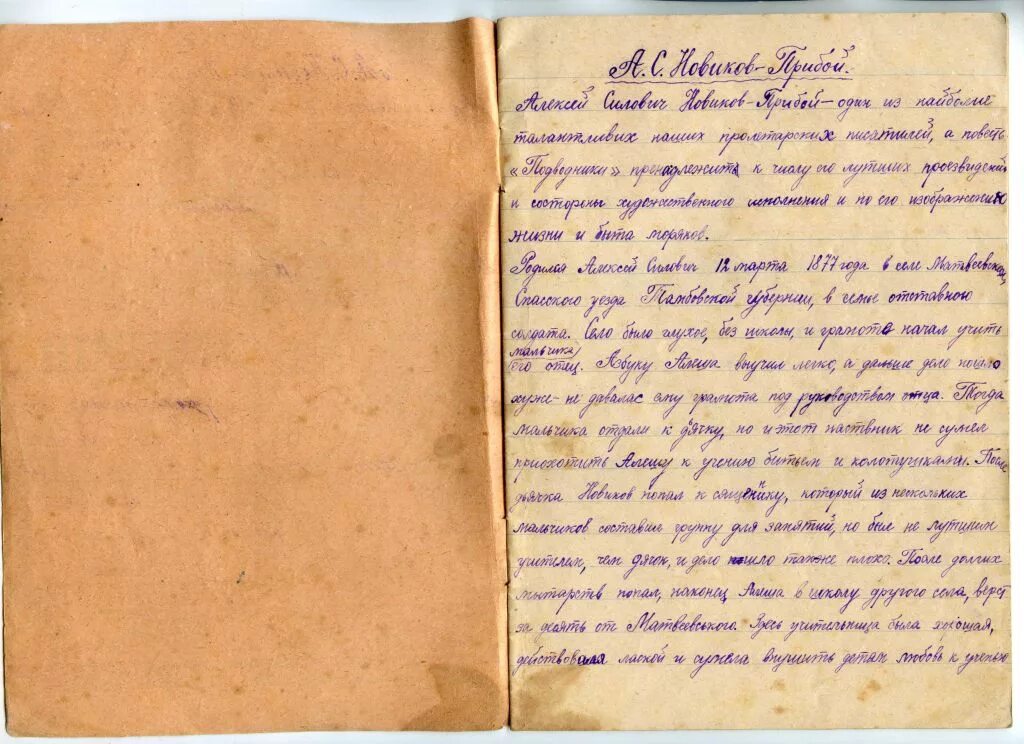 А. С. Новиков-Прибой.
Алексей Силович Новиков-Прибой – один из наиболие
талантливих наших пролетарских писателей, а повесть
«Подводники» пренадлежить к числу его лутших проезведений
и состороны художественного исполнения и по его изображению
жизни и быта моряков.
Родился Алексей Силович 12 марта 1877 года в селе Матвеевском,
Спасского уезда Тамбовской губернии, в семье отставного
солдата. Село было глухое, без школы, и грамоте начал учить
мальчика
его отец. Азбуку Алеша выучил легко, а дальше дело пошло
хуже – не давалас ему грамота под руководством отца. Тогда
мальчика отдали к дячку, но и этот наствник не сумел
приохотить Алешу к учению битьем и колотушками. После
дьячка Новиков попал к свщенику, который из нескольких
мальчиков составше групну для занятий, но был не лутшим
учителем, чем дячок, и дело пошло также плохо. После долгих
мытарств попал, наконец Алеша в школу другого села, верст
за десять от Матвеевського. Здесь учительница была хорошая,
действовала лаской и сумела внушить детям любовь к ученью